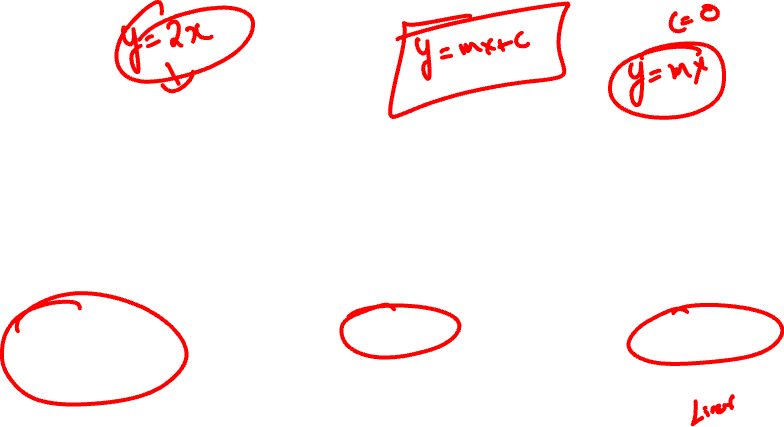 y=2x
y=mx+c
c=0
y=mx
Liner